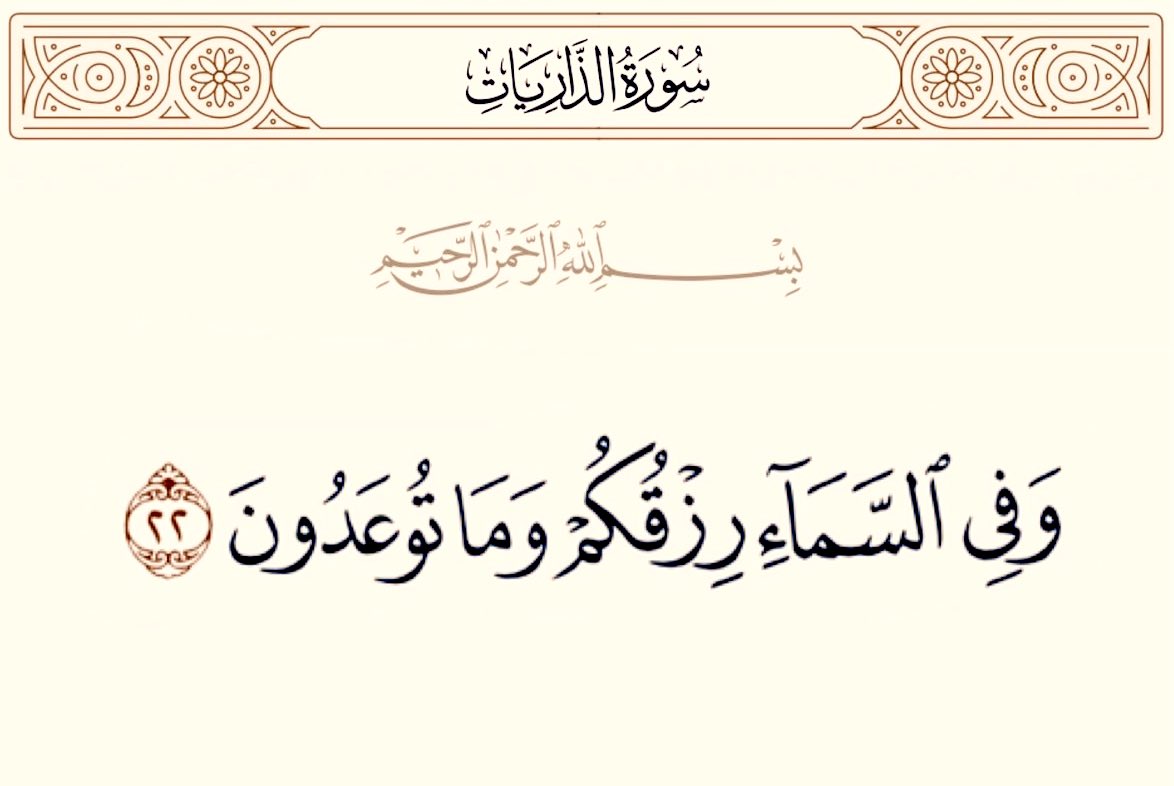 سُورَةُ الذَّارِيَاتِ
بِسْمِ ٱللَّهِ ٱلرَّحْمَٰنِ ٱلرَّحِيمِ
وَفِي ٱلسَّمَآءِ رِزْقُكُمْ وَمَا تُوعَدُونَ ٢٢